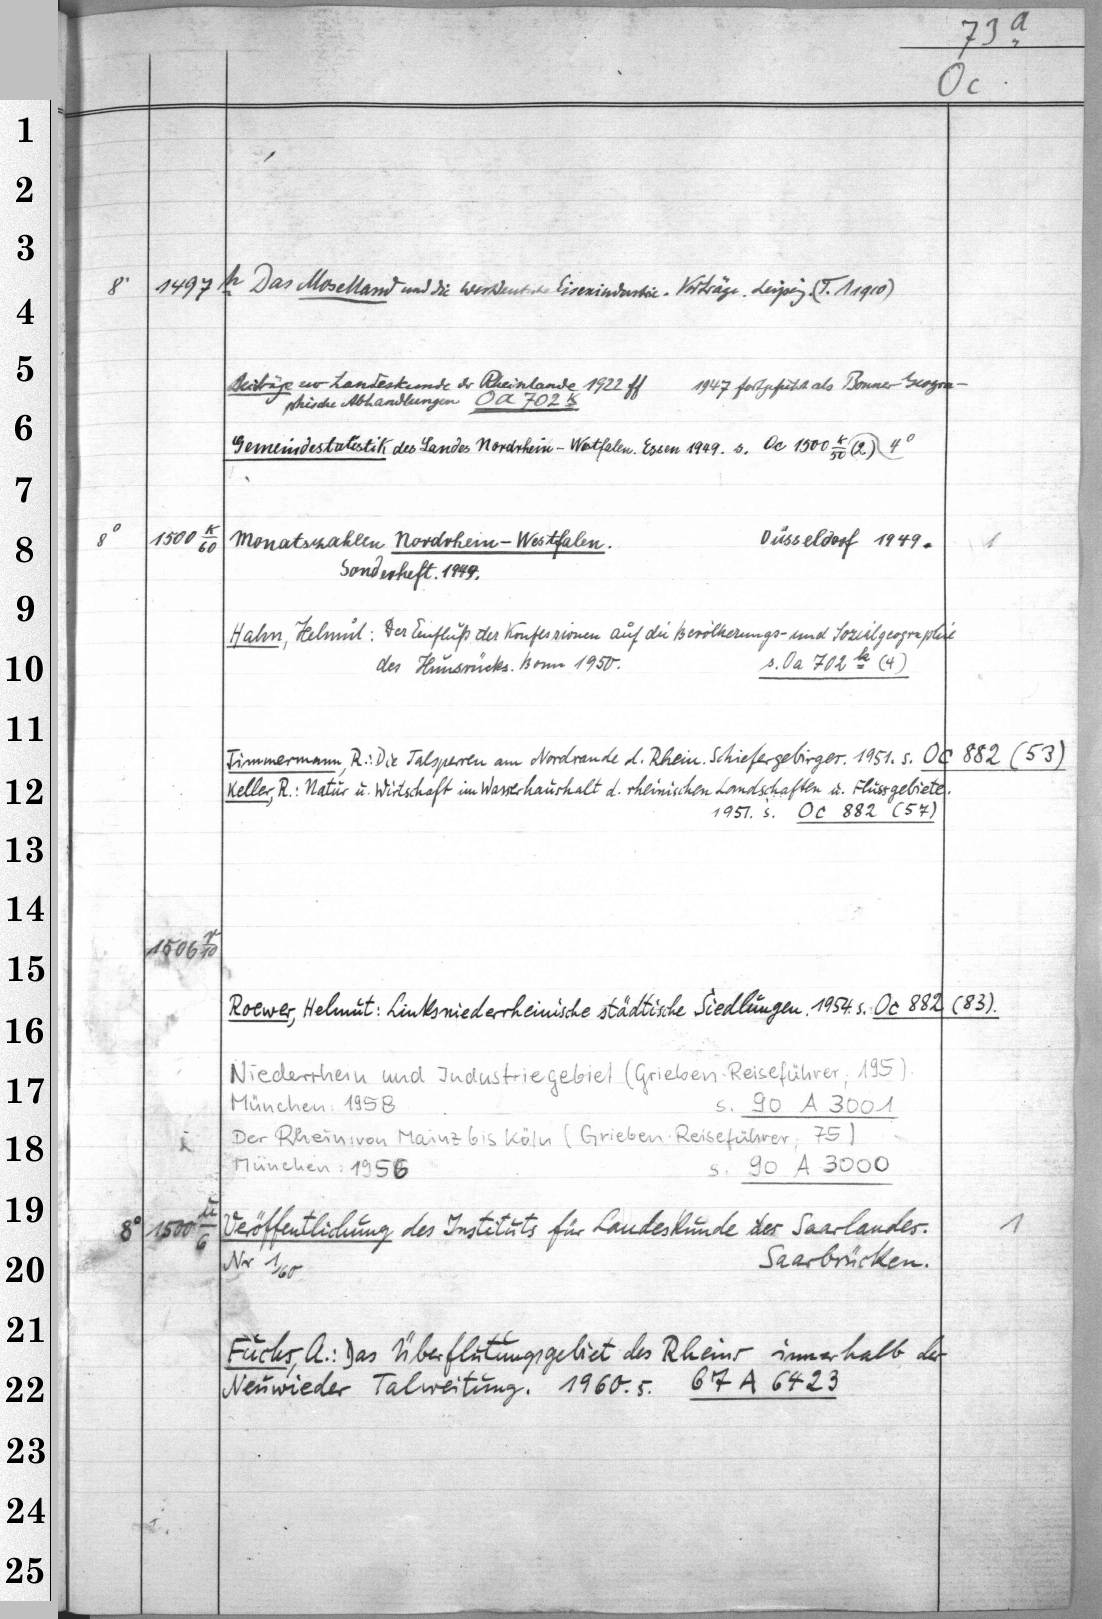 73 a
Oc
1
2
3
8° 1497 h Das Moselland und die westdeutsche Eisenindustrie. Vorträge. Leipzig. (T. 1 1910)
4
5
Beiträge zur Landeskunde der Rheinlande 1922 ff 1947 fortgeführt als Bonner Geogra-
phische Abhandlungen Oa 702 k
6
Gemeindestatistik des Landes Nordrhein-Westfalen. Essen 1949. s. Oc 1500 k/50 (2) 4°
7
8° 1500 k/60 Monatszahlen Nordrhein-Westfalen. Düsseldorf 1949. 1
8
Sonderheft. 1949.
9
Hahn, Helmut: Der Einfluß der Konfessionen auf die Bevölkerungs- und Sozialgeographie
10
des Hunsrücks. Bonn 1950. s. Oa 702 k (4)
11
Timmermann, R.: Die Talsperren am Nordrande d. Rhein. Schiefergebirges. 1951. s. Oc 882 (53)
12
Keller, R.: Natur u. Wirtschaft im Wasserhaushalt d. rheinischen Landschaften u. Flussgebiete.
1951. s. Oc 882 (57)
13
14
1506
15
Roewer, Helmut: Linksniederrheinische städtische Siedlungen. 1954. s. Oc 882 (83).
16
Niederrhein und Industriegebiet (Grieben-Reiseführer, 195).
17
München: 1958 s. 90 A 3001
Der Rhein von Mainz bis Köln (Grieben-Reiseführer, 75)
18
München: 1956 s. 90 A 3000
19
8° 1500 u/6 Veröffentlichung des Instituts für Landeskunde des Saarlandes. 1
Nr 1/60 Saarbrücken.
20
21
Fuchs, A.: Das Überflutungsgebiet des Rheins innerhalb der
22
Neuwieder Talweitung. 1960. s. 67 A 6423
23
24
25